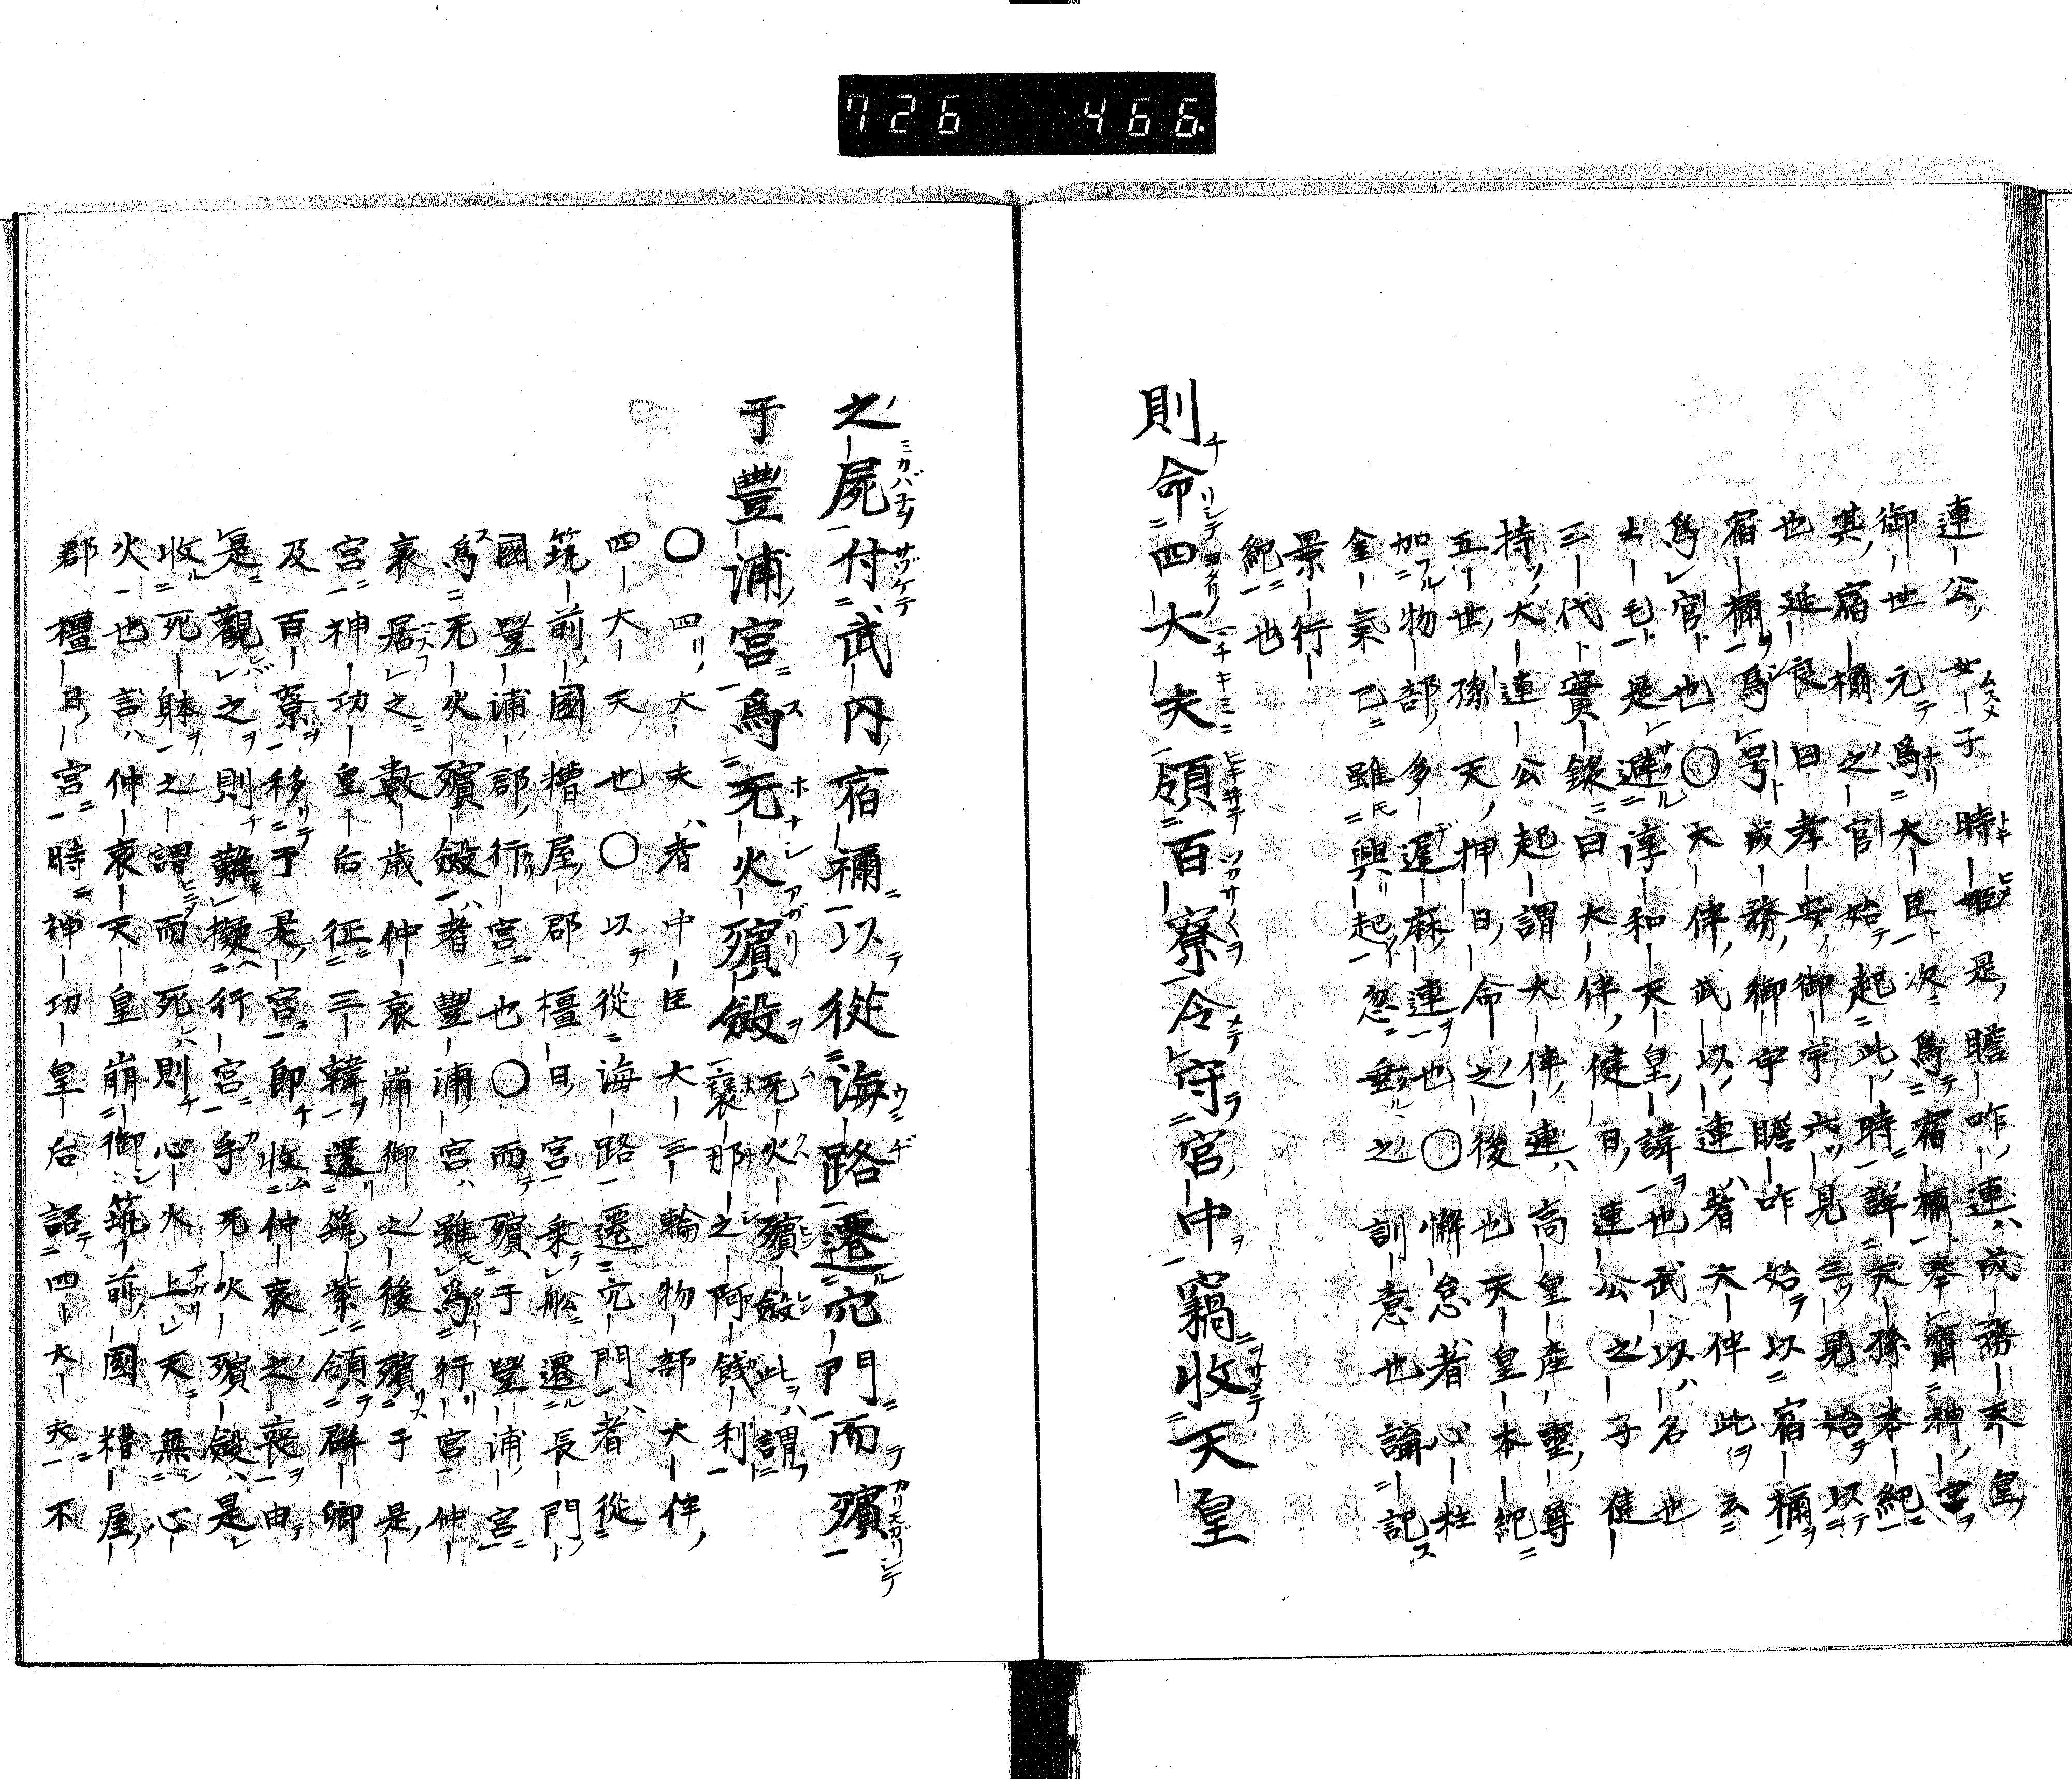 726 466.
連公女子時姫是膽咋連成務天皇
御世元爲大臣次爲宿禰奉齋神宮
其宿禰之官始起此時詳天孫本紀
也延良曰孝安御宇六見三見始以
宿禰爲号成務御宇膽咋始以宿禰
爲官也〇大伴武以連者大伴此云
士毛是避淳和天皇諱也武以名也
三代實錄曰大伴健日連公之子健
持大連公起謂大伴連高皇産靈尊
五世孫天押日命之後也天皇本紀
加物部多遲麻連也〇懈怠者心柱
金氣已雖興起忽垂之訓意也講記
景行
紀也
則命四大夫領百寮令守宮中竊收天皇
之屍付武内宿禰以從海路遷穴門而殯
于豐浦宮爲无火殯斂无火殯斂此謂褒那之阿餓利
〇四大夫者中臣大三輪物部大伴
四大夫也〇以從海路遷穴門者從
筑前國糟屋郡橿日宮乘舩遷長門
國豐浦郡行宮也〇而殯于豐浦宮
爲无火殯斂者豐浦宮雖爲行宮仲
哀居之數歳仲哀崩御之後殯于是
宮神功皇后征三韓還筑紫領群卿
及百寮移于是宮即收仲哀之喪由
是觀之則難擬行宮乎无火殯斂是
收死躰之謂而死則心火上天無心
火也言仲哀天皇崩御筑前國糟屋
郡橿日宮時神功皇后詔四大夫不